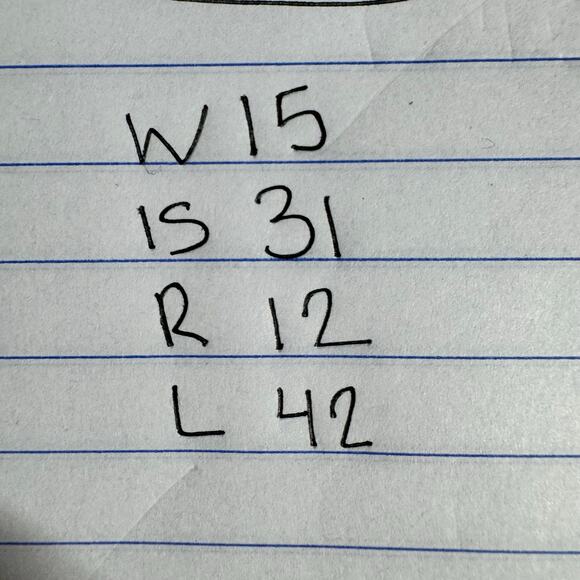 W 15
IS 31
R 12
L 42